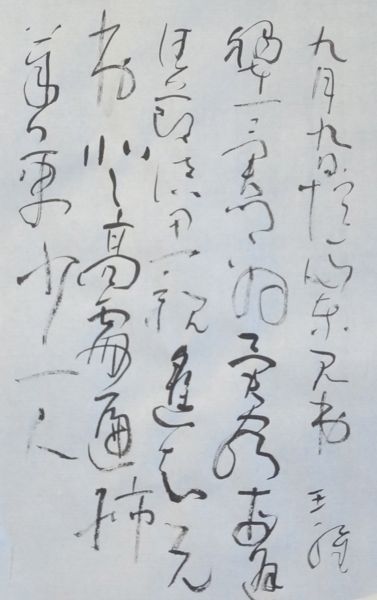 九月九日憶山東兄弟 王維
獨在異鄉為異客每逢
佳節倍思親遙知兄
弟登高處遍插
茱萸少一人